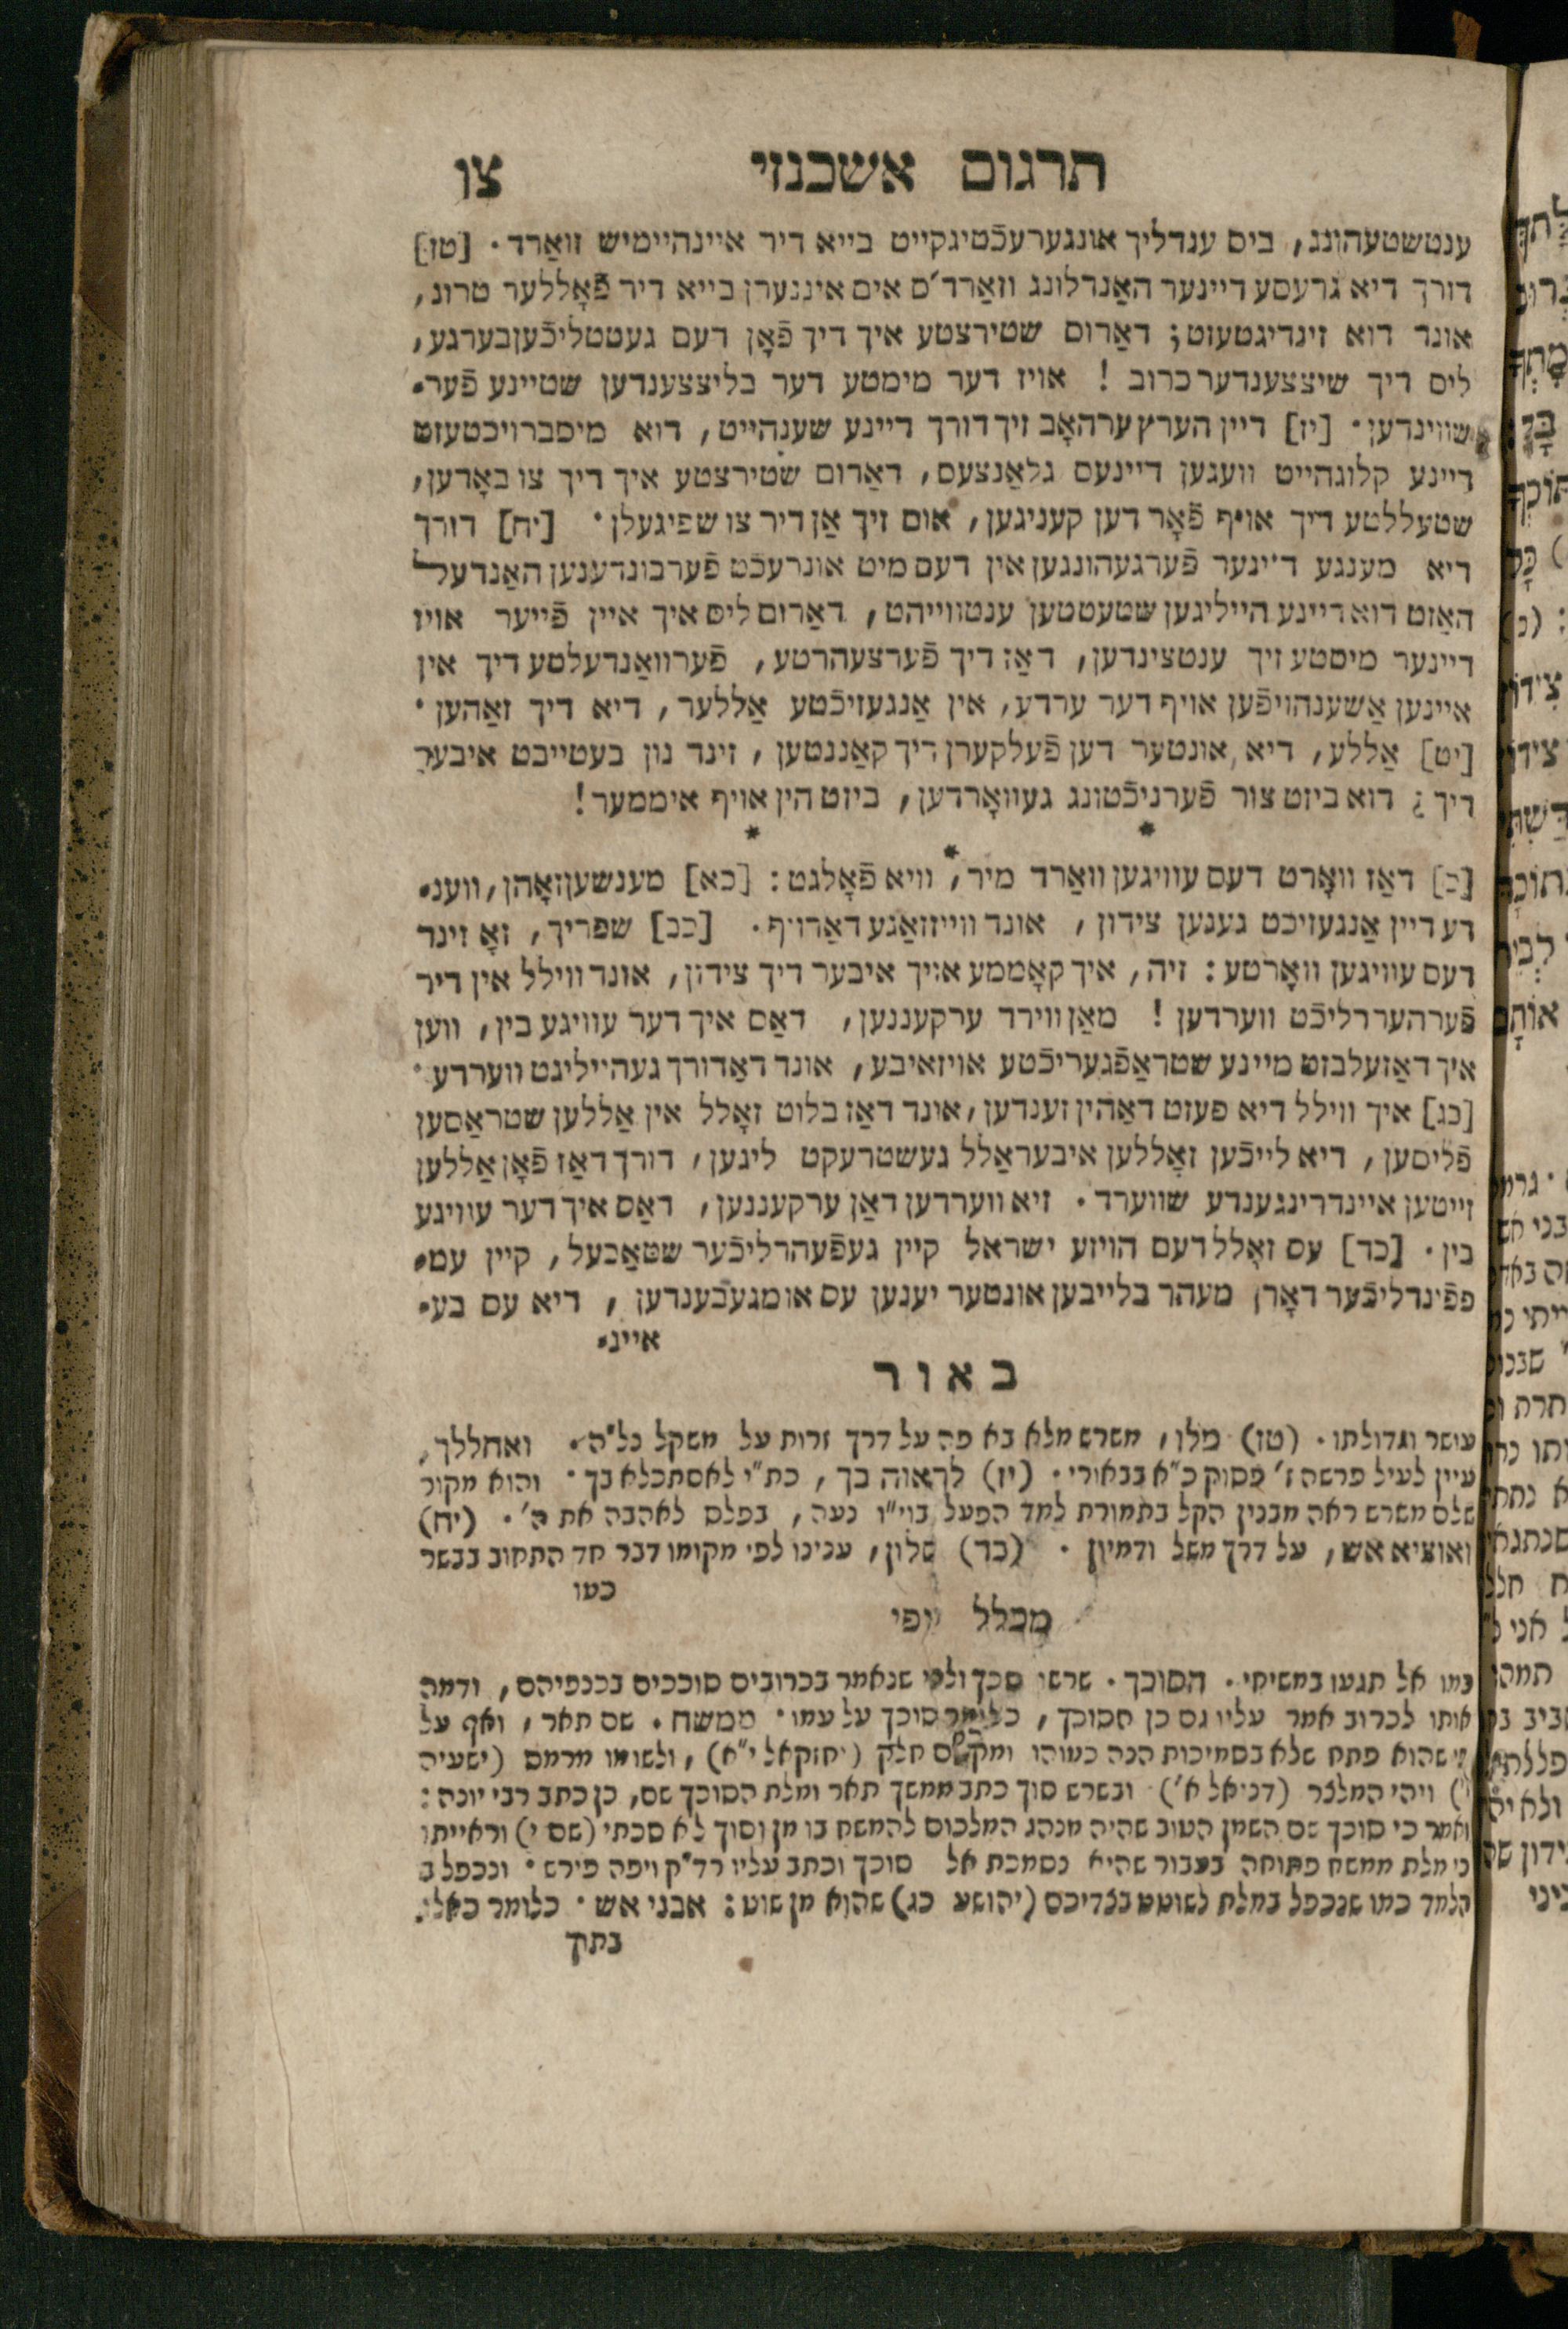 תרגום אשכנזי צו
ענטשטעהונג, ביס ענדליך אונגערעכֿטיגקייט בייא דיר איינהיימיש וואַרד. [טז]
דורך דיא גרעסע דיינער האַנדלונג וואַרד'ס אים איננערן בייא דיר פֿאָללער טרוג,
אונד דוא זינדיגטעזט; דאַרום שטירצטע איך דיך פֿאָן דעם געטטליכֿען בערגע,
ליס דיך שיצצענדער כרוב! אויז דער מיטטע דער בליצצענדען שטיינע פֿער-
שווינדען. [יז] דיין הערץ ערהאָב זיך דורך דיינע שענהייט, דוא מיסברויכטעזט
דיינע קלוגהייט וועגען דיינעס גלאַנצעס, דאַרום שטירצטע איך דיך צו באָדען,
שטעללטע דיך אויף פֿאָר דען קעניגען, אום זיך אַן דיר צו שפיגעלן. [יח] דורך
דיא מענגע דיינער פֿערגעהונגען אין דעם מיט אונרעכֿט פֿערבונדענען האַנדעל
האַזט דוא דיינע הייליגען שטעטטען ענטווייהט, דאַרום ליס איך איין פֿייער אויז
דיינער מיטטע זיך ענטצינדען, דאַז דיך פֿערצעהרטע, פֿערוואַנדעלטע דיך אין
איינען אַשענהויפֿען אויף דער ערדע, אין אַנגעזיכֿטע אַללער, דיא דיך זאַהען.
[יט] אַללע, דיא אונטער דען פֿעלקערן דיך קאַננטען, זינד נון בעטייבט איבער
דיך; דוא ביזט צור פֿערניכֿטונג געוואָרדען, ביזט הין אויף איממער!
* * *
[כ] דאַז וואָרט דעס עוויגען וואַרד מיר, וויא פֿאָלגט: [כא] מענשענזאָהן, ווענ-
דע דיין אַנגעזיכט געגען צידון, אונד ווייזזאַגע דאַרויף. [כב] שפריך, זאָ זינד
דעס עוויגען וואָרטע: זיה, איך קאָממע אויך איבער דיך צידון, אונד ווילל אין דיר
פֿערהעררליכֿט ווערדען! מאַן ווירד ערקעננען, דאַס איך דער עוויגע בין, ווען
איך דאַזעלבזט מיינע שטראַפֿגעריכֿטע אויזאיבע, אונד דאַדורך געהייליגט ווערדע.
[כג] איך ווילל דיא פעזט דאַהין זענדען, אונד דאַז בלוט זאָלל אין אַללען שטראַסען
פֿליסען, דיא לייכֿען זאָללען איבעראַלל געשטרעקט ליגען, דורך דאַז פֿאָן אַללען
זייטען איינדרינגענדע שווערד. זיא ווערדען דאַן ערקעננען, דאַס איך דער עוויגע
בין. [כד] עס זאָלל דעם הויזע ישראל קיין געפֿעהרליכֿער שטאַכעל, קיין עמ-
פפֿינדליכֿער דאָרן מעהר בלייבען אונטער יענען עס אומגעבענדען, דיא עס בע-
איינ-
באור
עושר וגדולתו. (טז) מלו, משרש מלא בא פה על דרך זרות על משקל נל"ה. ואחללך,
עיין לעיל פרשה ז' פסוק כ"א בבאורי. (יז) לראוה בך, כת"י לאסתכלא בך. והוא מקור
שלם משרש ראה מבנין הקל בתמורת למד הפעל בוי"ו נעה, בפלס לאהבה את ה'. (יח)
ואוציא אש, על דרך משל ודמיון. (כד) סלון, ענינו לפי מקומו דבר חד התחוב בבשר
כעו
מכלל יופי
כמו אל תגעו במשיחי. הסוכך. שרשו סכך ולפי שנאמר בכרובים סוככים בכנפיהם, ודמה
אותו לכרוב אמר עליו גם כן הסוכך, כלומר סוכך על עמו. ממשח. שם תאר, ואף על
פי שהוא פתח שלא בסמיכות הנה כמוהו ומקסם חלק (יחזקאל י"א), ולשומו מרמס (ישעיה
י') ויהי המלצר (דניאל א') ובשרש סוך כתב ממשך תאר ומלת הסוכך שם, כן כתב רבי יונה:
ואמר כי סוכך שם השמן הטוב שהיה מנהג המלכים להמשח בו מן וסוך לא סכתי (שם י) וראייתו
כי מלת ממשח פתוחה בעבור שהיא נסמכת אל סוכך וכתב עליו רד"ק ויפה פירש. ונכפל ב
הלמד כמו שנכפל במלת לשוטט בצדיכם (יהושע כג) שהוא מן שוט: אבני אש. כלומר כאלו
בתוך